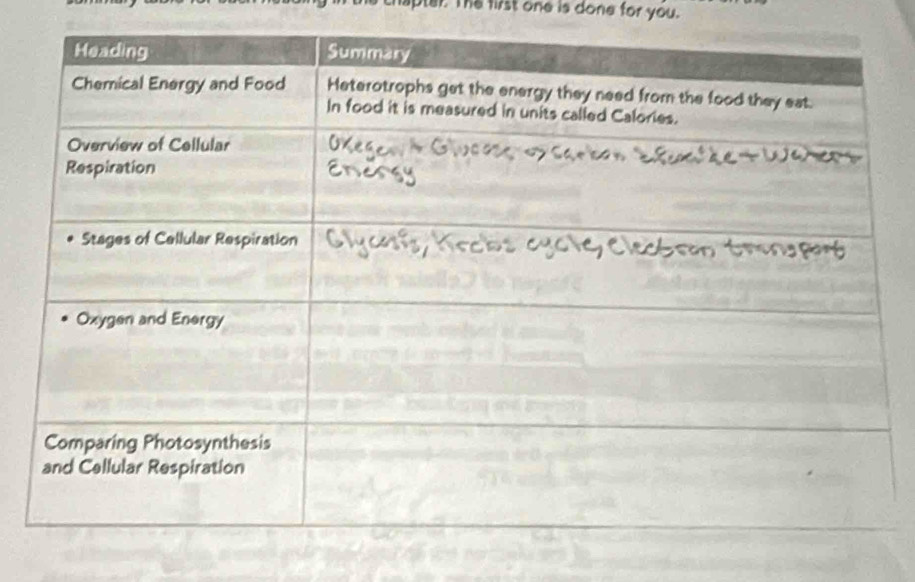 The first one is done for you.
Heading
Summary
Chemical Energy and Food
Heterotrophs get the energy they need from the food they eat.
In food it is measured in units called Calories.
Overview of Cellular
Respiration
Oxegen + Glucose
Energy
• Stages of Cellular Respiration
Glycosis, Krebs cycle, Electron transport
• Oxygen and Energy
Comparing Photosynthesis
and Cellular Respiration